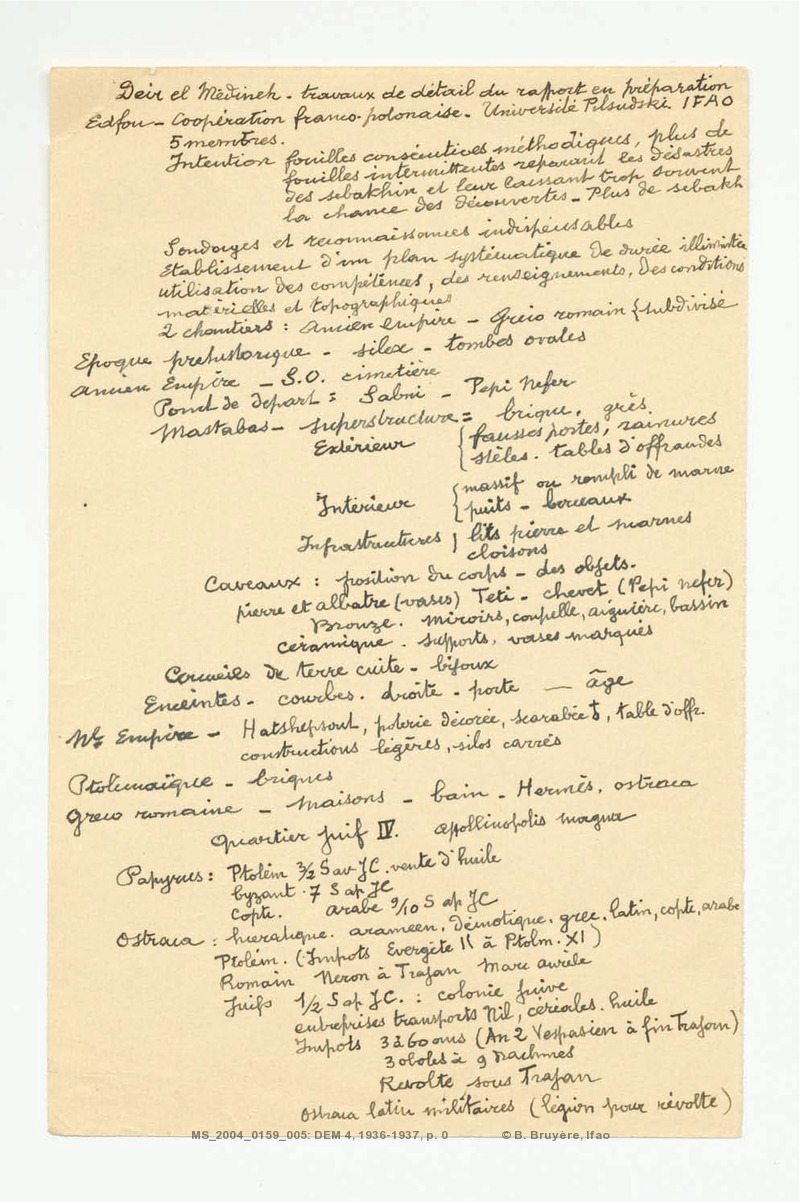 Deir el Médineh - travaux de détail du rapport en préparation
Edfou - Coopération franco-polonaise - Université Pilsudski IFAO
5 membres.
Intention fouilles consécutives méthodiques, plus de
fouilles intermittentes réparant les désastres
des sebakhin et leur laissant trop souvent
la chance des découvertes - Plus de sebakh
Sondages et reconnaissances indispensables
Etablissement d'un plan systématique de durée illimitée
utilisation des compétences, des renseignements, des conditions
matérielles et topographiques
2 chantiers : Ancien empire - Gréco romain { subdivisé
Epoque préhistorique - silex - tombes ovales
Ancien Empire - S.O. cimetière
Point de départ : Sabni - Pepi Nefer
Mastabas - superstructure = brique, grès.
Extérieur { fausses portes, rainures
stèles. tables d'offrandes
Intérieur { massif ou rempli de marne
puits - berceaux
Infrastructures } lits pierre et marnes
cloisons
Caveaux : position du corps - des objets.
pierre et albatre (vases) Teti - chevet (Pepi nefer)
Bronze. miroirs, coupelle, aiguière, bassin
céramique. supports, vases marqués
Cercueils de terre cuite - bijoux
Enceintes - courbes. droite - porte — âge
Nl Empire - Hatshepsout, poterie décorée, scarabée, table d'offr.
constructions légères, silos carrés
Ptolemaïque - briques
Greco romaine - Maisons - bain - Hermès, ostraca
Quartier juif IV. Apollinopolis magna
Papyrus : Ptolém 3/2 S av JC. vente d'huile
byzant. 7 S ap JC
Copte. arabe 9/10 S ap JC
Ostraca : hieratique. arameen. démotique. grec. latin, copte, arabe
Ptolém. (Impots Evergète II à Ptolm. XI)
Romain Neron à Trajan Marc aurèle
Juifs 1/2 S ap JC. : colonie juive
entreprises transports Nil, céréales. huile
Impots 3 à 60 ans (An 2 Vespasien à fin Trajan)
3 oboles à 9 drachmes
Révolte sous Trajan
Ostraca latin militaires (légion pour révolte)
MS_2004_0159_005: DEM 4, 1936-1937, p. 0 © B. Bruyère, Ifao